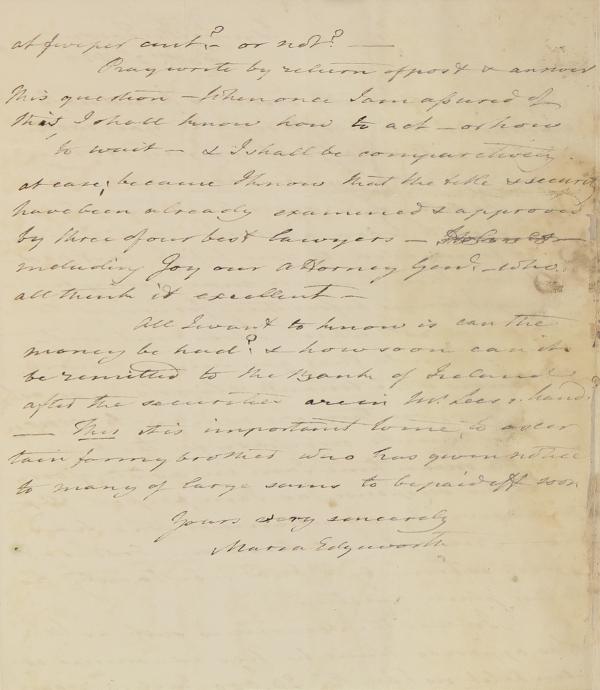 at five per cent? – or not? —
Pray write by return of post & answer
this question – When once I am assured of
this, I shall know how to act – or how
to wait – & I shall be comparatively
at ease; because I know that the title & security
have been already examined & approved
by three of our best lawyers –
including Joy our Attorney Genl. – who
all think it excellent –
All I want to know is can the
money be had? & how soon can it
be remitted to the Bank of Ireland
after the securities are in Mr. Lees's hand.
— This it is important to me to ascer
tain for my brother who has given notice
to many of large sums to be paid off soon
Yours very sincerely
Maria Edgeworth